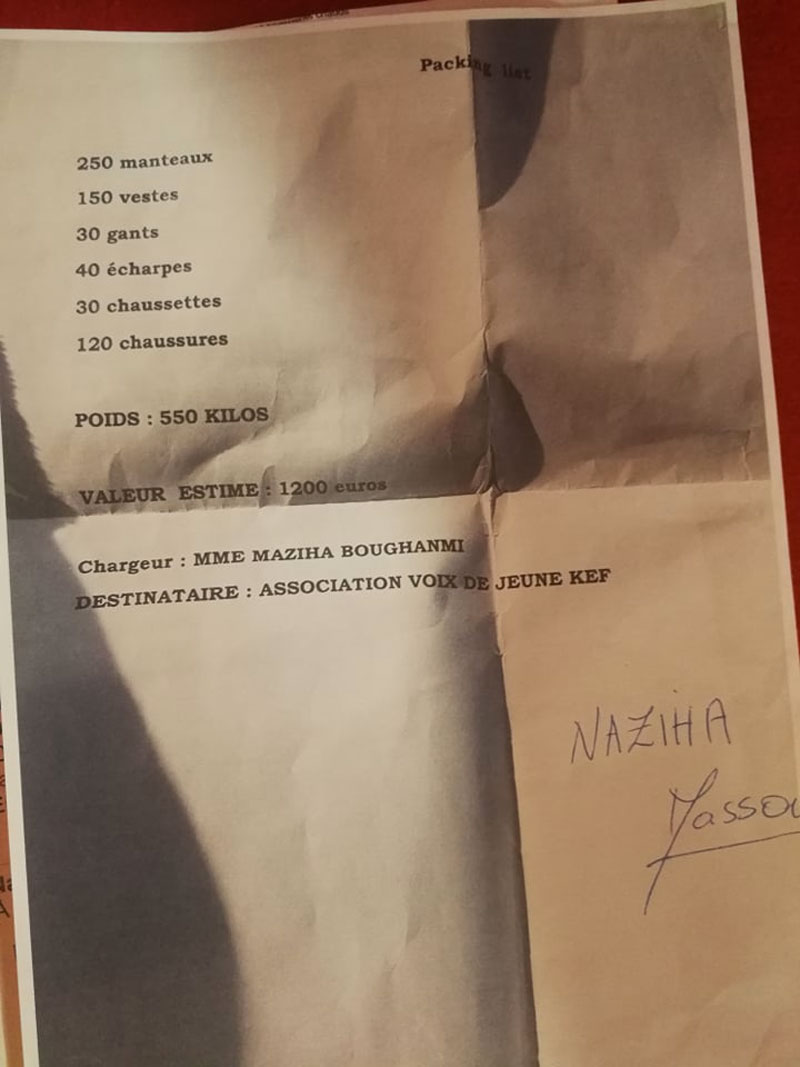 Packing list
250 manteaux
150 vestes
30 gants
40 écharpes
30 chaussettes
120 chaussures
POIDS : 550 KILOS
VALEUR ESTIME : 1200 euros
Chargeur : MME MAZIHA BOUGHANMI
DESTINATAIRE : ASSOCIATION VOIX DE JEUNE KEF
NAZIHA